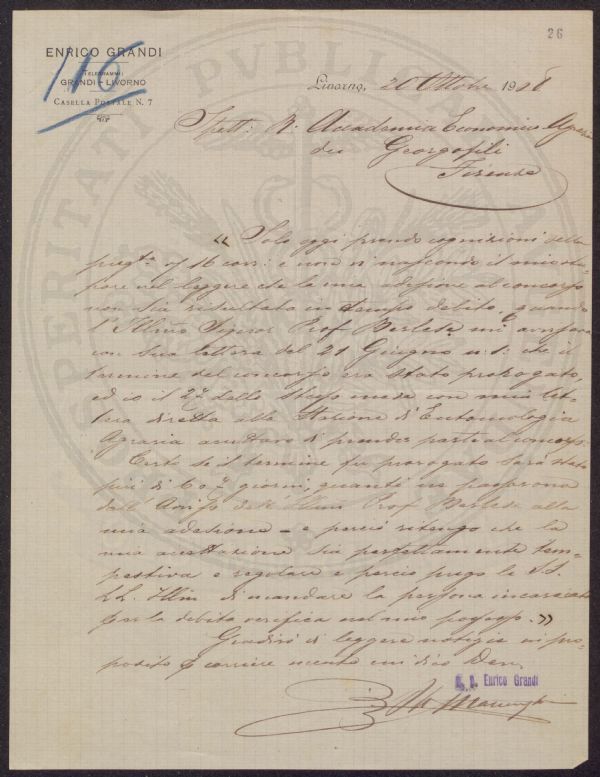 26
ENRICO GRANDI
116
TELEGRAMMI:
GRANDI - LIVORNO
CASELLA POSTALE N. 7
Livorno, 20 Ottobre 1908
Spett: R. Accademia Economico Agraria
dei Georgofili
Firenze
« Solo oggi prendo cognizione della
preg.ta 16 corr: e non vi nascondo il mio stu-
pore nel leggere che la mia adesione al concorso
non sia risultata in tempo debito, quando
l'Illmo Signor Prof Berlese mi avvisava
con Sua lettera del 21 Giugno u. s: che il
termine del concorso era stato prorogato,
ed io il 27 dello stesso mese con mia let-
tera diretta alla Stazione d'Entomologia
Agraria accettavo di prender parte al concorso.
Certo se il termine fu prorogato sarà stato
più di 6 giorni, quanti ne passarono
dall'avviso dell'Illmo Prof Berlese alla
mia adesione - e perciò ritengo che la
mia accettazione sia perfettamente tem-
pestiva e regolare e perciò prego le S.S.
LL. Illm di mandare la persona incaricata
per la debita verifica nel mio possesso. »
Gradirò di leggere notizie in pro-
posito a corriere mentre mi dico Dev.
p. p. Enrico Grandi